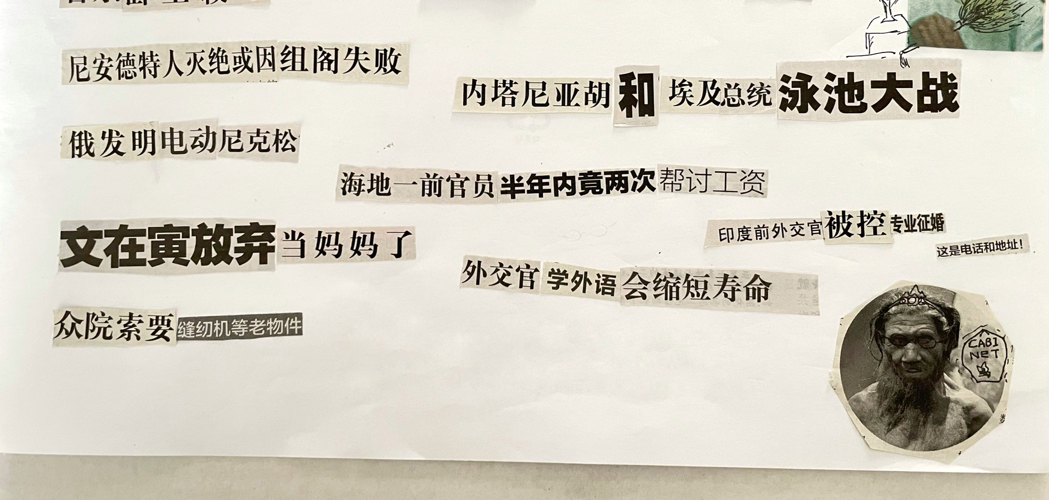 尼安德特人灭绝或因组阁失败
内塔尼亚胡和埃及总统泳池大战
俄发明电动尼克松
海地一前官员半年内竟两次帮讨工资
文在寅放弃当妈妈了
印度前外交官被控专业征婚
这是电话和地址!
外交官学外语会缩短寿命
众院索要缝纫机等老物件
CABI
NET